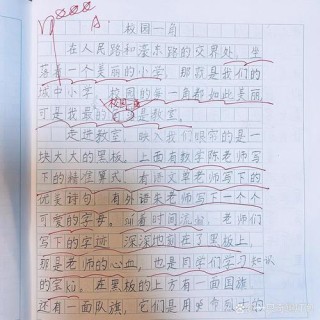 校园一角
在人民路和滨东路的交界处，坐
落着一个美丽的小学，那就是我们的
城中小学。校园的每一角都如此美丽，
校园一角
可是我最的是教室。
走进教室，映入我们眼帘的是一
块大大的黑板。上面有数学陈老师写
下的精准算式，有语文单老师写下的
优美诗句，有外语朱老师写下一个个
可爱的字母。随着时间流逝，老师们
写下的字迹，深深地刻在了黑板上，
那是老师的心血，也是同学们学习知识
的宝箱。在黑板的上方有一面国旗
还有一面队旗，它们是用革命烈士的